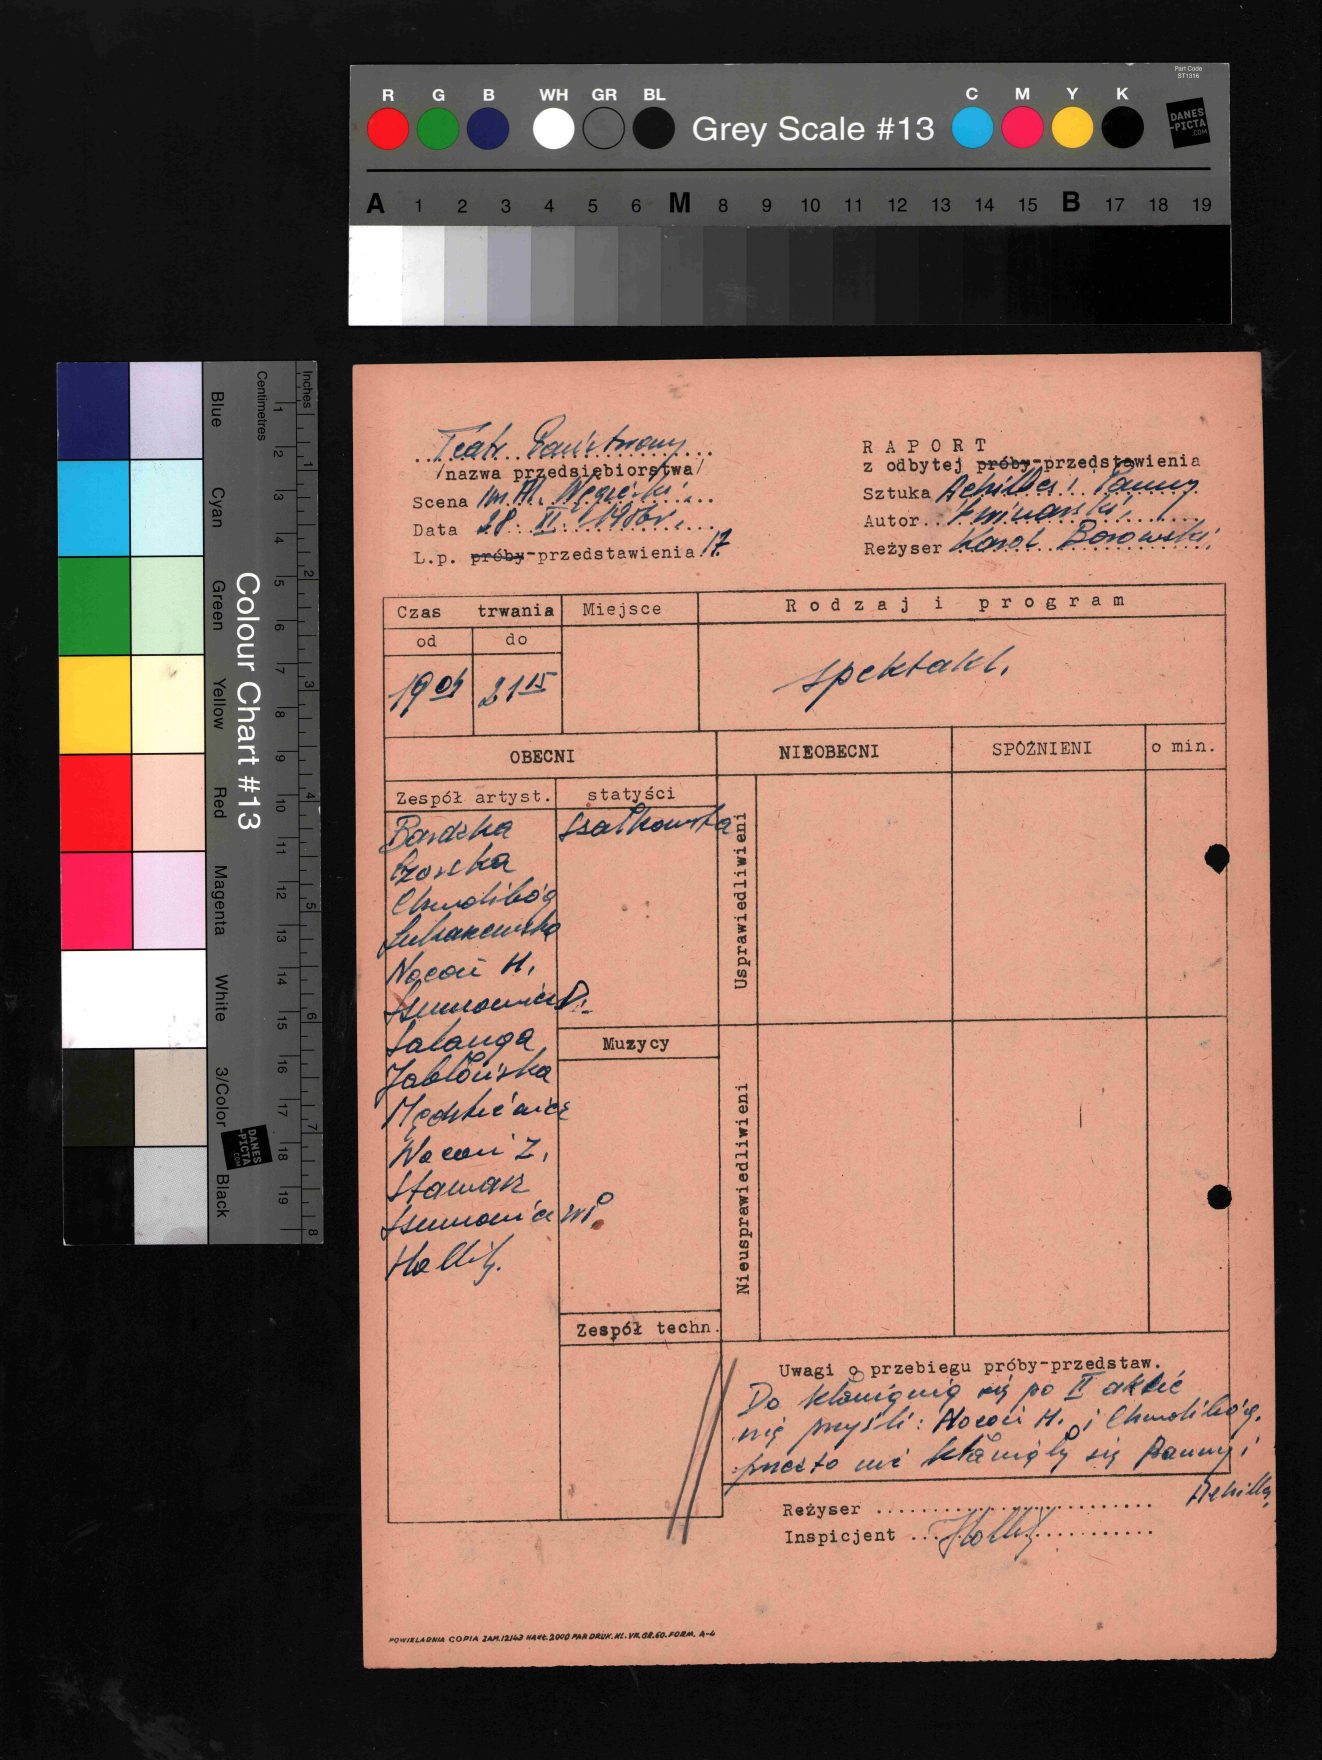 Part Code
ST1316
R G B WH GR BL Grey Scale #13 C M Y K
DANES
-PICTA
.COM
A 1 2 3 4 5 6 M 8 9 10 11 12 13 14 15 B 17 18 19
Colour Chart #13
Blue Cyan Green Yellow Red Magenta White 3/Color Black
Centimetres
1 2 3 4 5 6 7 8 9 10 11 12 13 14 15 16 17 18 19
Inches
1 2 3 4 5 6 7 8
DANES
-PICTA
.COM
Teatr Państwowy
/nazwa przedsiębiorstwa/
Scena im. Al. Węgierki
Data 28. XI.
L.p. próby-przedstawienia 17
RAPORT
z odbytej próby-przedstawienia
Sztuka Achilles i Panny
Autor
Reżyser Karol Borowski
Czas trwania Miejsce Rodzaj i program
od do
19 04 21 15 spektakl.
OBECNI NIEOBECNI SPÓŹNIENI o min.
Zespół artyst. statyści
Bardzka Szałkowska
Czoska
Chmolibóg
Łukaszewska
Nocoń H.
Szumowicz D.
Salanga
Jabłońska
Nocoń Z.
Stawarz
Szumowicz
Hallik.
Usprawiedliwieni
Muzycy
Nieusprawiedliwieni
Zespół techn.
Uwagi o przebiegu próby-przedstaw.
Do kłaniania się po II akcie
nie przyśli: Nocoń H. i Chmolibóg,
przeto nie kłaniały się Panny i
Achilles
Reżyser
Inspicjent
POWIELARNIA COPIA ZAM.12143 NAKŁ.2000 PAP.DRUK.KL.VII.GR.60.FORM. A-4